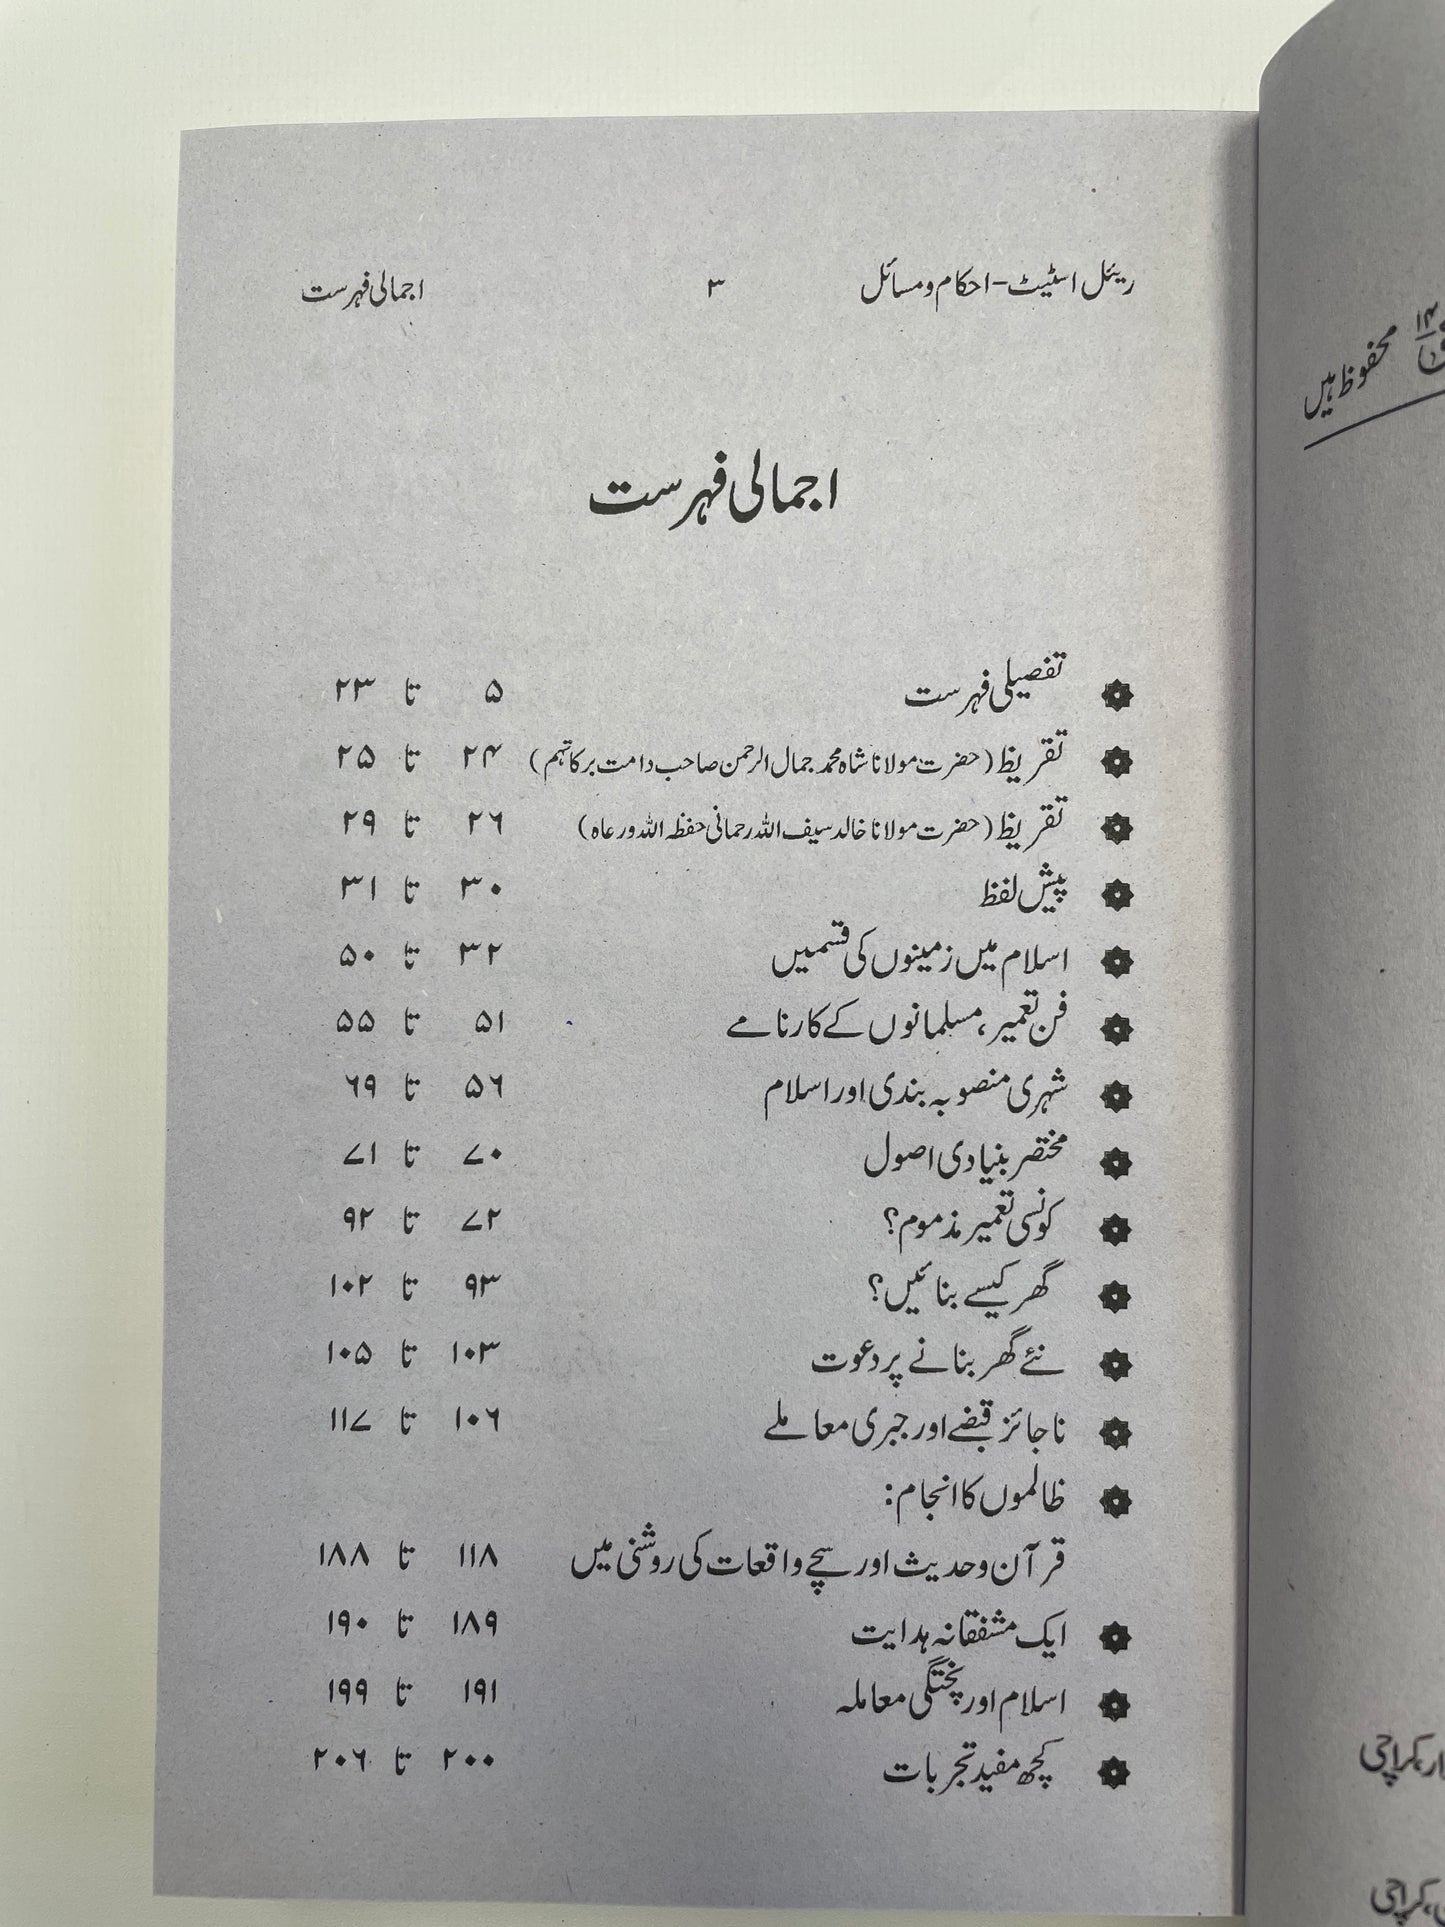 ریئل اسٹیٹ - احکام و مسائل ۳ اجمالی فہرست
محفوظ ہیں
اجمالی فہرست
تفصیلی فہرست ۵ تا ۲۳
تقریظ (حضرت مولانا شاہ محمد جمال الرحمن صاحب دامت برکاتہم) ۲۴ تا ۲۵
تقریظ (حضرت مولانا خالد سیف اللہ رحمانی حفظہ اللہ ورعاہ) ۲۶ تا ۲۹
پیش لفظ ۳۰ تا ۳۱
اسلام میں زمینوں کی قسمیں ۳۲ تا ۵۰
فن تعمیر، مسلمانوں کے کارنامے ۵۱ تا ۵۵
شہری منصوبہ بندی اور اسلام ۵۶ تا ۶۹
مختصر بنیادی اصول ۷۰ تا ۷۱
کونسی تعمیر مذموم؟ ۷۲ تا ۹۲
گھر کیسے بنائیں؟ ۹۳ تا ۱۰۲
نئے گھر بنانے پر دعوت ۱۰۳ تا ۱۰۵
ناجائز قبضے اور جبری معاملے ۱۰۶ تا ۱۱۷
ظالموں کا انجام:
قرآن و حدیث اور سچے واقعات کی روشنی میں ۱۱۸ تا ۱۸۸
ایک مشفقانہ ہدایت ۱۸۹ تا ۱۹۰
اسلام اور پختگی معاملہ ۱۹۱ تا ۱۹۹
کچھ مفید تجربات ۲۰۰ تا ۲۰۶
کراچی
کراچی